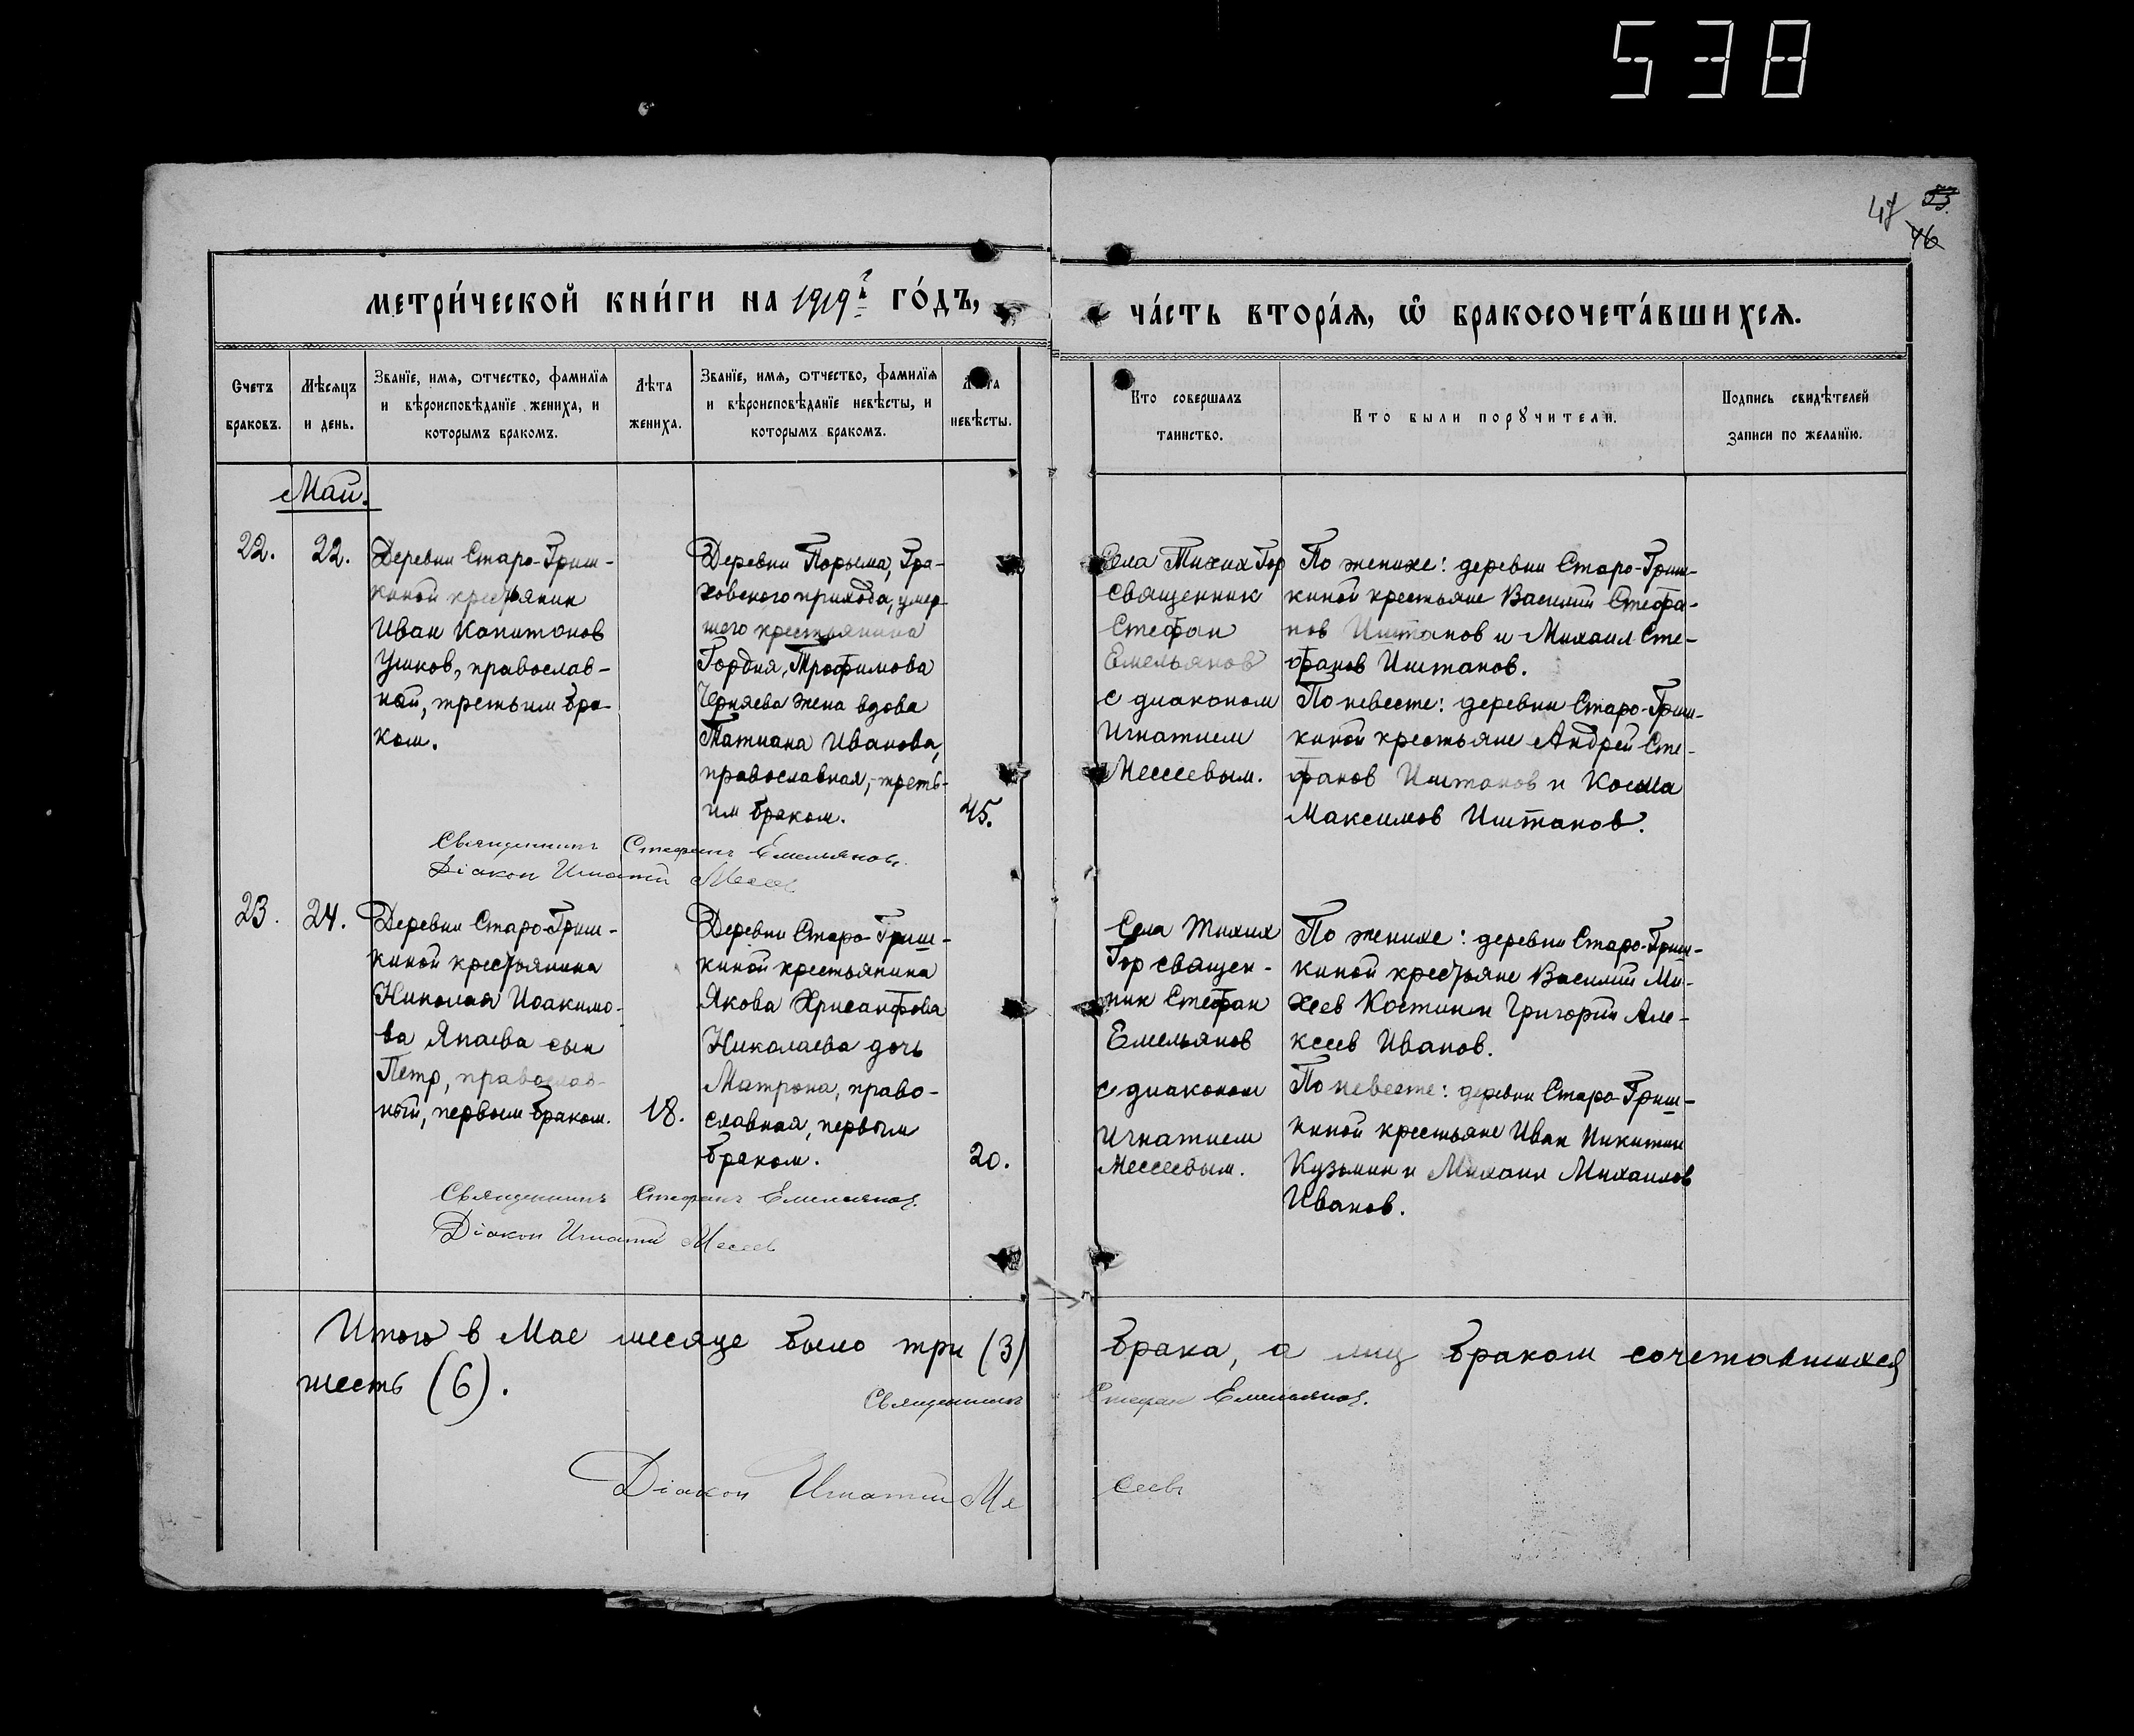 538
47 53.
46
МЕТРИ́ЧЕСКОЙ КНИ́ГИ НА 1919 г. ГО́ДЪ,
ЧА́СТЬ ВТОРА́Я, Ѡ҆ БРАКОСОЧЕТА́ВШИХСЯ.
Счетъ
браковъ.
Мѣсяцъ
и день.
Званїе, имя, ѿтчество, фамилїя
и вѣроисповѣданїе жениха, и
которымъ бракомъ.
Лѣта
жениха.
Званїе, имя, ѿтчество, фамилїя
и вѣроисповѣданїе невѣсты, и
которымъ бракомъ.
Лѣта
невѣсты.
Кто совершалъ
таинство.
Кто были порꙋчители.
Подпись свидѣтелей
записи по желанїю.
Май.
22.
22.
Деревни Старо-Гриш-
киной крестьянин
Иван Капитонов
Ушков, православ-
ной, третьим бра-
ком.
Деревни Порыма, Гра-
ховского прихода, умер-
шего крестьянина
Гордия Трофимова
Черняева жена вдова
Татиана Иванова,
православная, треть-
им браком.
45.
Села Тихих Гор
священник
Стефан
Емельянов
с диаконом
Игнатием
Мессевым.
По женихе: деревни Старо-Гриш-
киной крестьяне Василий Стефа-
нов Иштанов и Михаил Сте-
фанов Иштанов.
По невесте: деревни Старо-Гриш-
киной крестьяне Андрей Сте-
фанов Иштанов и Косма
Максимов Иштанов.
Священникъ Стефанъ Емельяновъ.
Діакон Игнатий Месеев
23.
24.
Деревни Старо-Гриш-
киной крестьянина
Николая Иоакимо-
ва Япаева сын
Петр, православ-
ный, первым браком.
18.
Деревни Старо-Гриш-
киной крестьянина
Якова Хрисанфова
Николаева дочь
Матрона, право-
славная, первым
браком.
20.
Села Тихих
Гор священ-
ник Стефан
Емельянов
с диаконом
Игнатием
Мессеевым.
По женихе: деревни Старо-Гриш-
киной крестьяне Василий Ми-
хеев Костин и Григорий Але-
ксеев Иванов.
По невесте: деревни Старо-Гриш-
киной крестьяне Иван Никитин
Кузьмин и Михаил Михаилов
Иванов.
Священникъ Стефанъ Емельянов.
Діакон Игнатий Месеев
Итого в Мае месяце было три (3) брака, а лиц браком сочетавшихся
шесть (6).
Священникъ Стефан Емельянов.
Діакон Игнатий Месеевъ